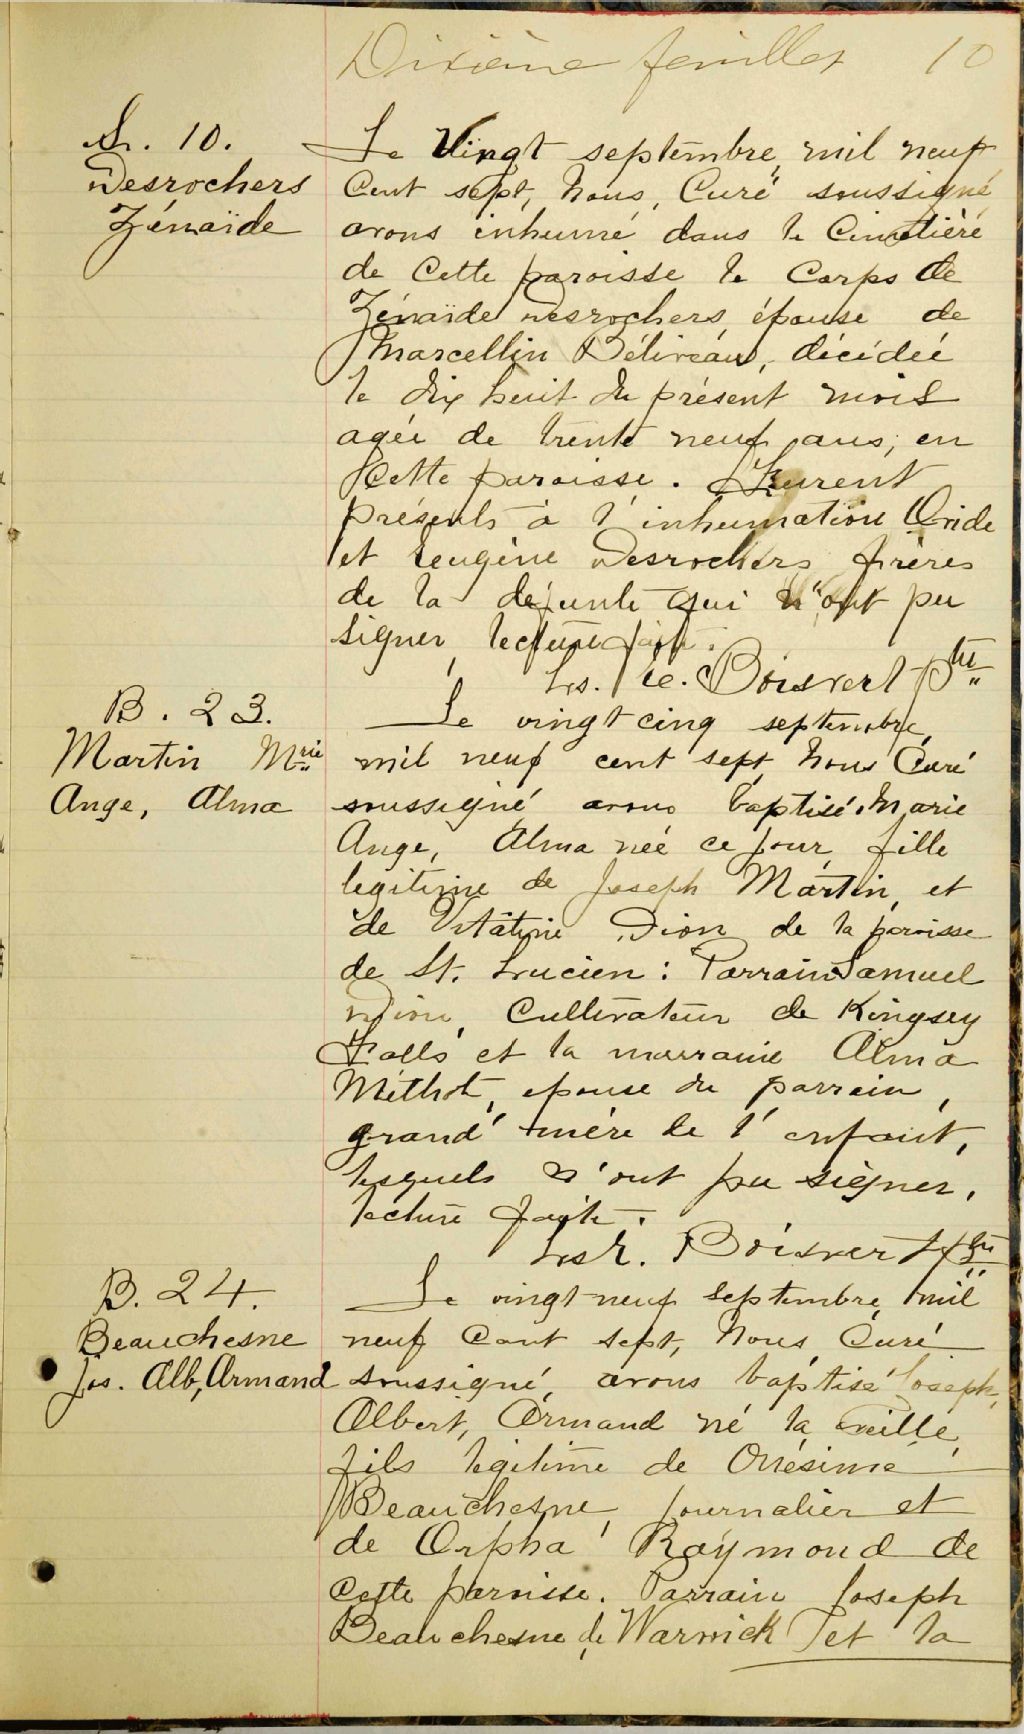 Dixième feuillet 10
S. 10.
Desrochers
Zénaïde
Le Vingt septembre, mil neuf
cent sept, Nous, Curé soussigné
avons inhumé dans le Cimetière
de cette paroisse le Corps de
Zénaïde Desrochers, épouse de
Marcellin Béliveau, décédée
le dix huit du présent mois
agée de trente neuf ans, en
cette paroisse. Furent
présents à l'inhumation Ovide
et Eugène Desrochers frères
de la défunte qui n'ont pu
signer, lecture faite.
Ls. E. Boisvert Ptre
B. 23.
Martin Mrie
Ange, Alma
Le vingt cinq septembre,
mil neuf cent sept, Nous Curé
soussigné avons baptisé Marie
Ange, Alma née ce jour, fille
legitime de Joseph Martin, et
de Dion de la paroisse
de St. Lucien: Parrain Samuel
Dion, Cultivateur de Kingsey
Falls et la marraine Alma
Méthot, epouse du parrain,
grand'mère de l'enfant,
lesquels n'ont pu signer,
lecture faite.
Ls E. Boisvert Ptre
B. 24.
Beauchesne
Jos. Alb, Armand
Le vingt-neuf septembre, mil
neuf cent sept, Nous, Curé
soussigné, avons baptisé Joseph,
Albert, Armand né la veille,
fils legitime de Onésime
Beauchesne, journalier et
de Orpha Raymond de
cette paroisse. Parrain Joseph
Beauchesne de Warwick et la